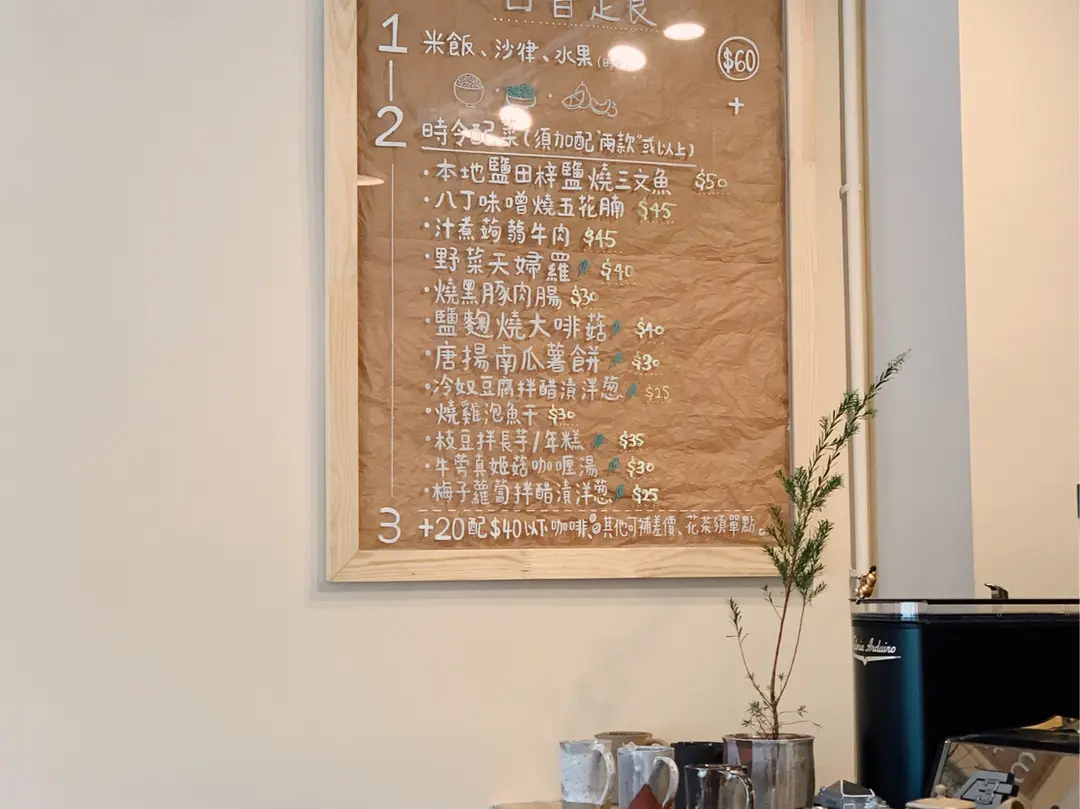 日昔定食
1 米飯、沙律、水果
$60
+
2 時令配菜(須加配"兩款"或以上)
·本地鹽田梓鹽燒三文魚 $50
·八丁味噌燒五花腩 $45
·汁煮蒟蒻牛肉 $45
·野菜天婦羅 $40
·燒黑豚肉腸 $30
·鹽麴燒大啡菇 $40
·唐揚南瓜薯餅 $30
·冷奴豆腐拌醋漬洋葱 $25
·燒雞泡魚干 $30
·枝豆拌長芋/年糕 $35
·牛蒡真姬菇咖喱湯 $30
·梅子蘿蔔拌醋漬洋葱 $25
3 +20配$40以下咖啡,其他可補差價、花茶須單點。
Victoria Arduino